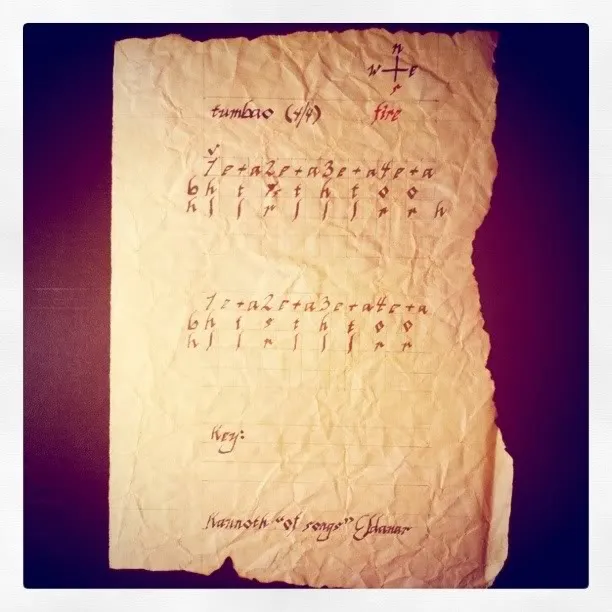 n
w e
s
tumbao (4/4) fire
1 e + a 2 e + a 3 e + a 4 e + a
b h t s t h t o o
h l l r l l l r r h
1 e + a 2 e + a 3 e + a 4 e + a
b h t s t h t o o
h l l r l l l r r
Key:
"of songs"